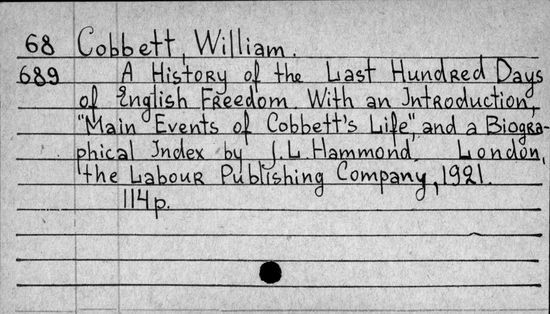 68 Cobbett, William.
689 A History of the Last Hundred Days
of English Freedom. With an Introduction,
"Main Events of Cobbett's Life", and a Biogra-
phical Index by J.L. Hammond. London,
the Labour Publishing Company, 1921.
114p.